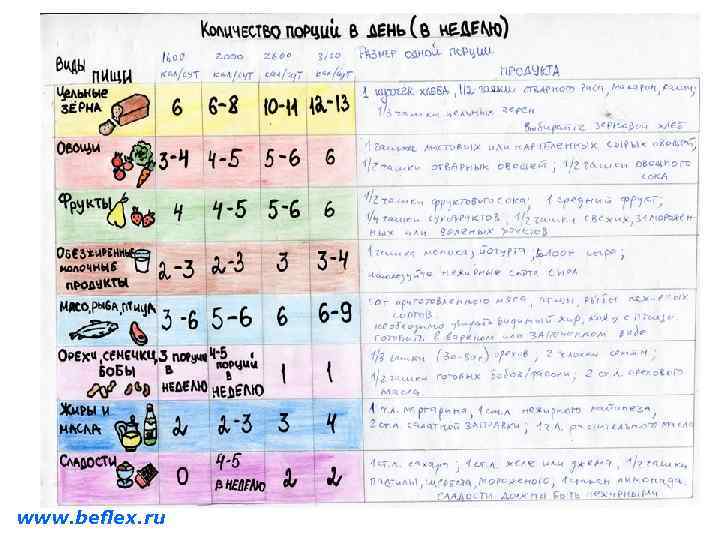 Количество порций в день (в неделю)
Виды пищи
1600 кал/сут
2000 кал/сут
2600 кал/сут
3100 кал/сут
Размер одной порции
продукта
Цельные зёрна
6
6-8
10-11
12-13
1 кусочек хлеба, 1/2 чашки отварного риса, макарон, каши;
1/3 чашки цельных зерен
Выбирайте зерновой хлеб
Овощи
3-4
4-5
5-6
6
1 чашка листовых или нарезленных сырых овощей,
1/2 чашки отварных овощей; 1/2 чашки овощного
сока
Фрукты
4
4-5
5-6
6
1/2 чашки фруктового сока; 1 средний фрукт,
1/4 чашки сухофруктов, 1/2 чашки свежих, заморожен-
ных или
Обезжиренные
молочные
продукты
2-3
2-3
3
3-4
1 чашка молока; йогурта, сыра;
нежирные сорта сыра
Мясо, рыба, птица
3-6
5-6
6
6-9
приготовленного мяса, птицы, рыбы нежирных
сортов.
необходимо убирать видимый жир, кожу с птицы
готовить в вареном или запеченном виде
Орехи, семечки,
бобы
3 порции
в
неделю
4-5
порций
в
неделю
1
1
1/3 чашки орехов, 2 семян;
1/2 чашки готовых бобов/фасоли; 2 ст.л. орехового
масла
Жиры и
масла
2
2-3
3
4
1 ч.л. маргарина, 1 ст.л нежирного майонеза,
2 ст.л. салатной заправки; 1 ч.л. растительного масла
Сладости
0
4-5
в неделю
2
2
1 ст.л. сахара; 1 ст.л. желе или джема, 1/2 чашки
мороженого, 1 стакан лимонада.
сладости должны быть нежирными
www.beflex.ru